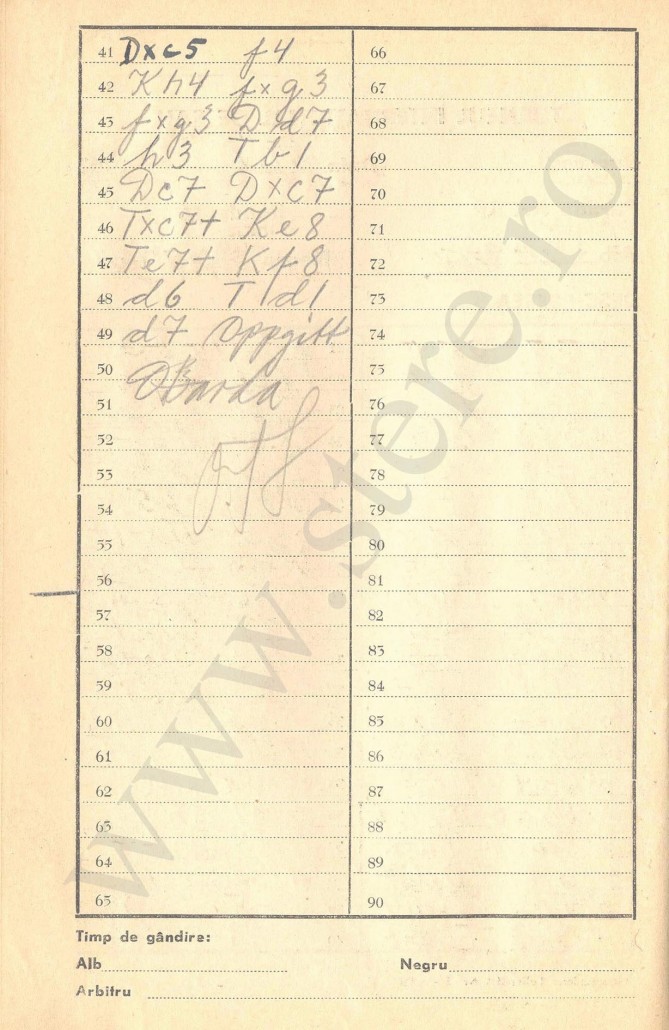 41 Dxc5 f4
42 Kh4 fxg3
43 fxg3 Dd7
44 h3 Tb1
45 Dc7 Dxc7
46 Txc7+ Ke8
47 Te7+ Kf8
48 d6 Td1
49 d7 Oppgitt
50
51
52
53
54
55
56
57
58
59
60
61
62
63
64
65
66
67
68
69
70
71
72
73
74
75
76
77
78
79
80
81
82
83
84
85
86
87
88
89
90
www.stere.ro
Timp de gândire:
Alb
Negru
Arbitru